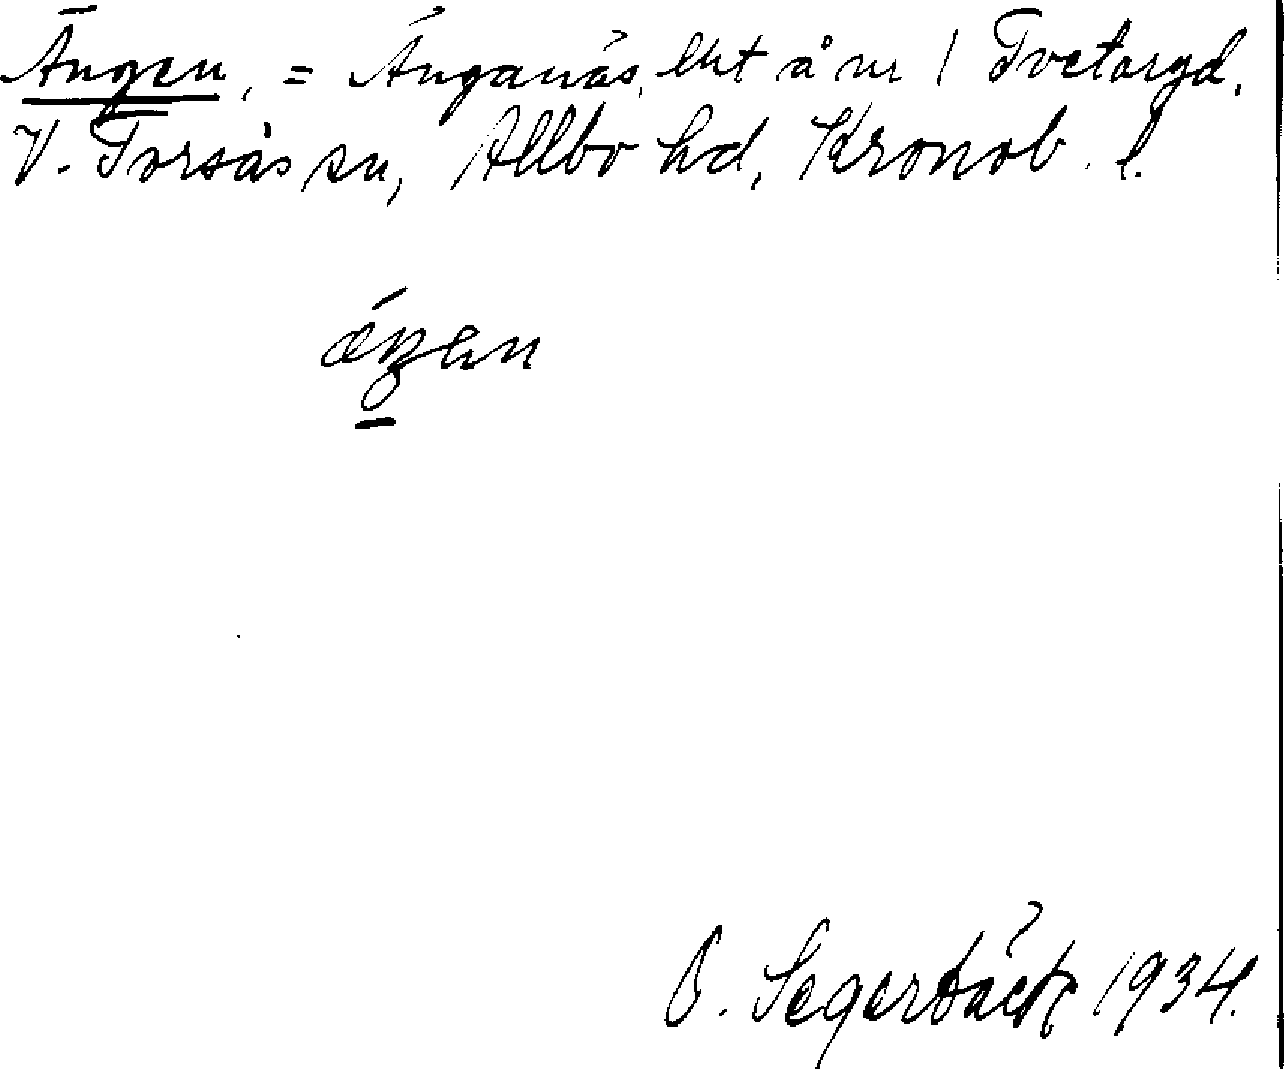 Ängen, = Änganäs, lht å nr 1 Tvetaryd,
V. Torsås sn, Allbo hd, Kronob. l.
ǽŋen
O. Segerbäck 1934.